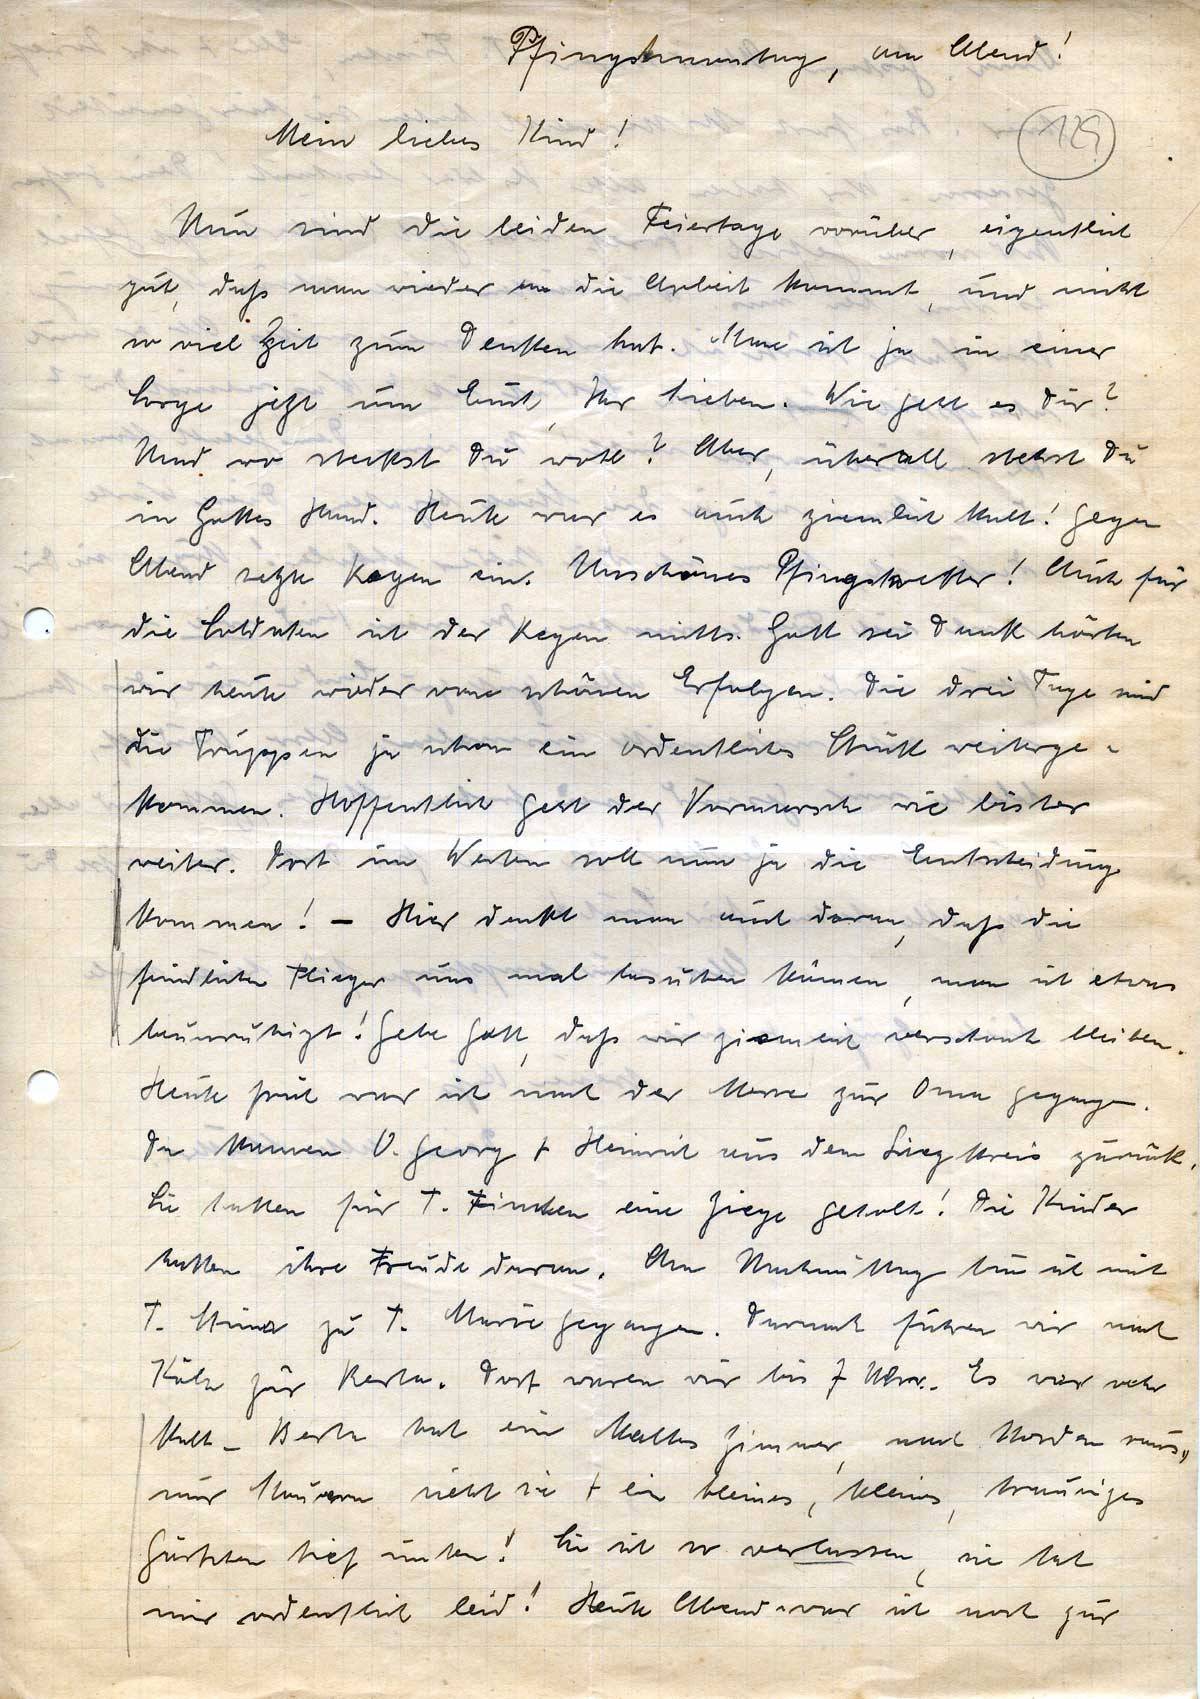 Pfingstmontag, am Abend!
129
Mein liebes Kind!
Nun sind die beiden Feiertage vorüber, eigentlich
gut, daß man wieder an die Arbeit kommt, und nicht
so viel Zeit zum Denken hat. Man ist ja in einer
Sorge jetzt um Euch, Ihr Lieben. Wie geht es Dir?
Und wo steckst Du wohl? Aber, überall stehst Du
in Gottes Hand. Heute war es auch ziemlich kalt! Gegen
Abend setzte Regen ein. Unschönes Pfingstwetter! Auch für
die Soldaten ist der Regen nichts. Gott sei Dank hörten
wir heute wieder von schönen Erfolgen. Die drei Tage sind
die Truppen ja schon ein ordentliches Stück weiterge-
kommen. Hoffentlich geht der Vormarsch wie bisher
weiter. Dort im Westen soll nun ja die Entscheidung
kommen! – Hier denkt man auch daran, daß die
feindlichen Flieger uns mal besuchen können, man ist etwas
beunruhigt! Gebe Gott, daß wir ziemlich verschont bleiben.
Heute früh war ich nach der Messe zur Oma gegangen.
Da kamen O. Georg + Heinrich aus dem Siegkreis zurück.
Sie hatten für T. Finchen eine Ziege geholt! Die Kinder
hatten ihre Freude daran. Am Nachmittag bin ich mit
T. Stina zu T. Marie gegangen. Danach fuhren wir nach
Köln zur Berta. Dort waren wir bis 7 Uhr. Es war sehr
kalt – Berta hat ein kaltes Zimmer, nach Norden raus,
nur Mauern sieht sie + ein kleines, kleines, trauriges
Gärtchen tief unten! Sie ist so verlassen, sie tat
mir ordentlich leid! Heute Abend war ich noch zur